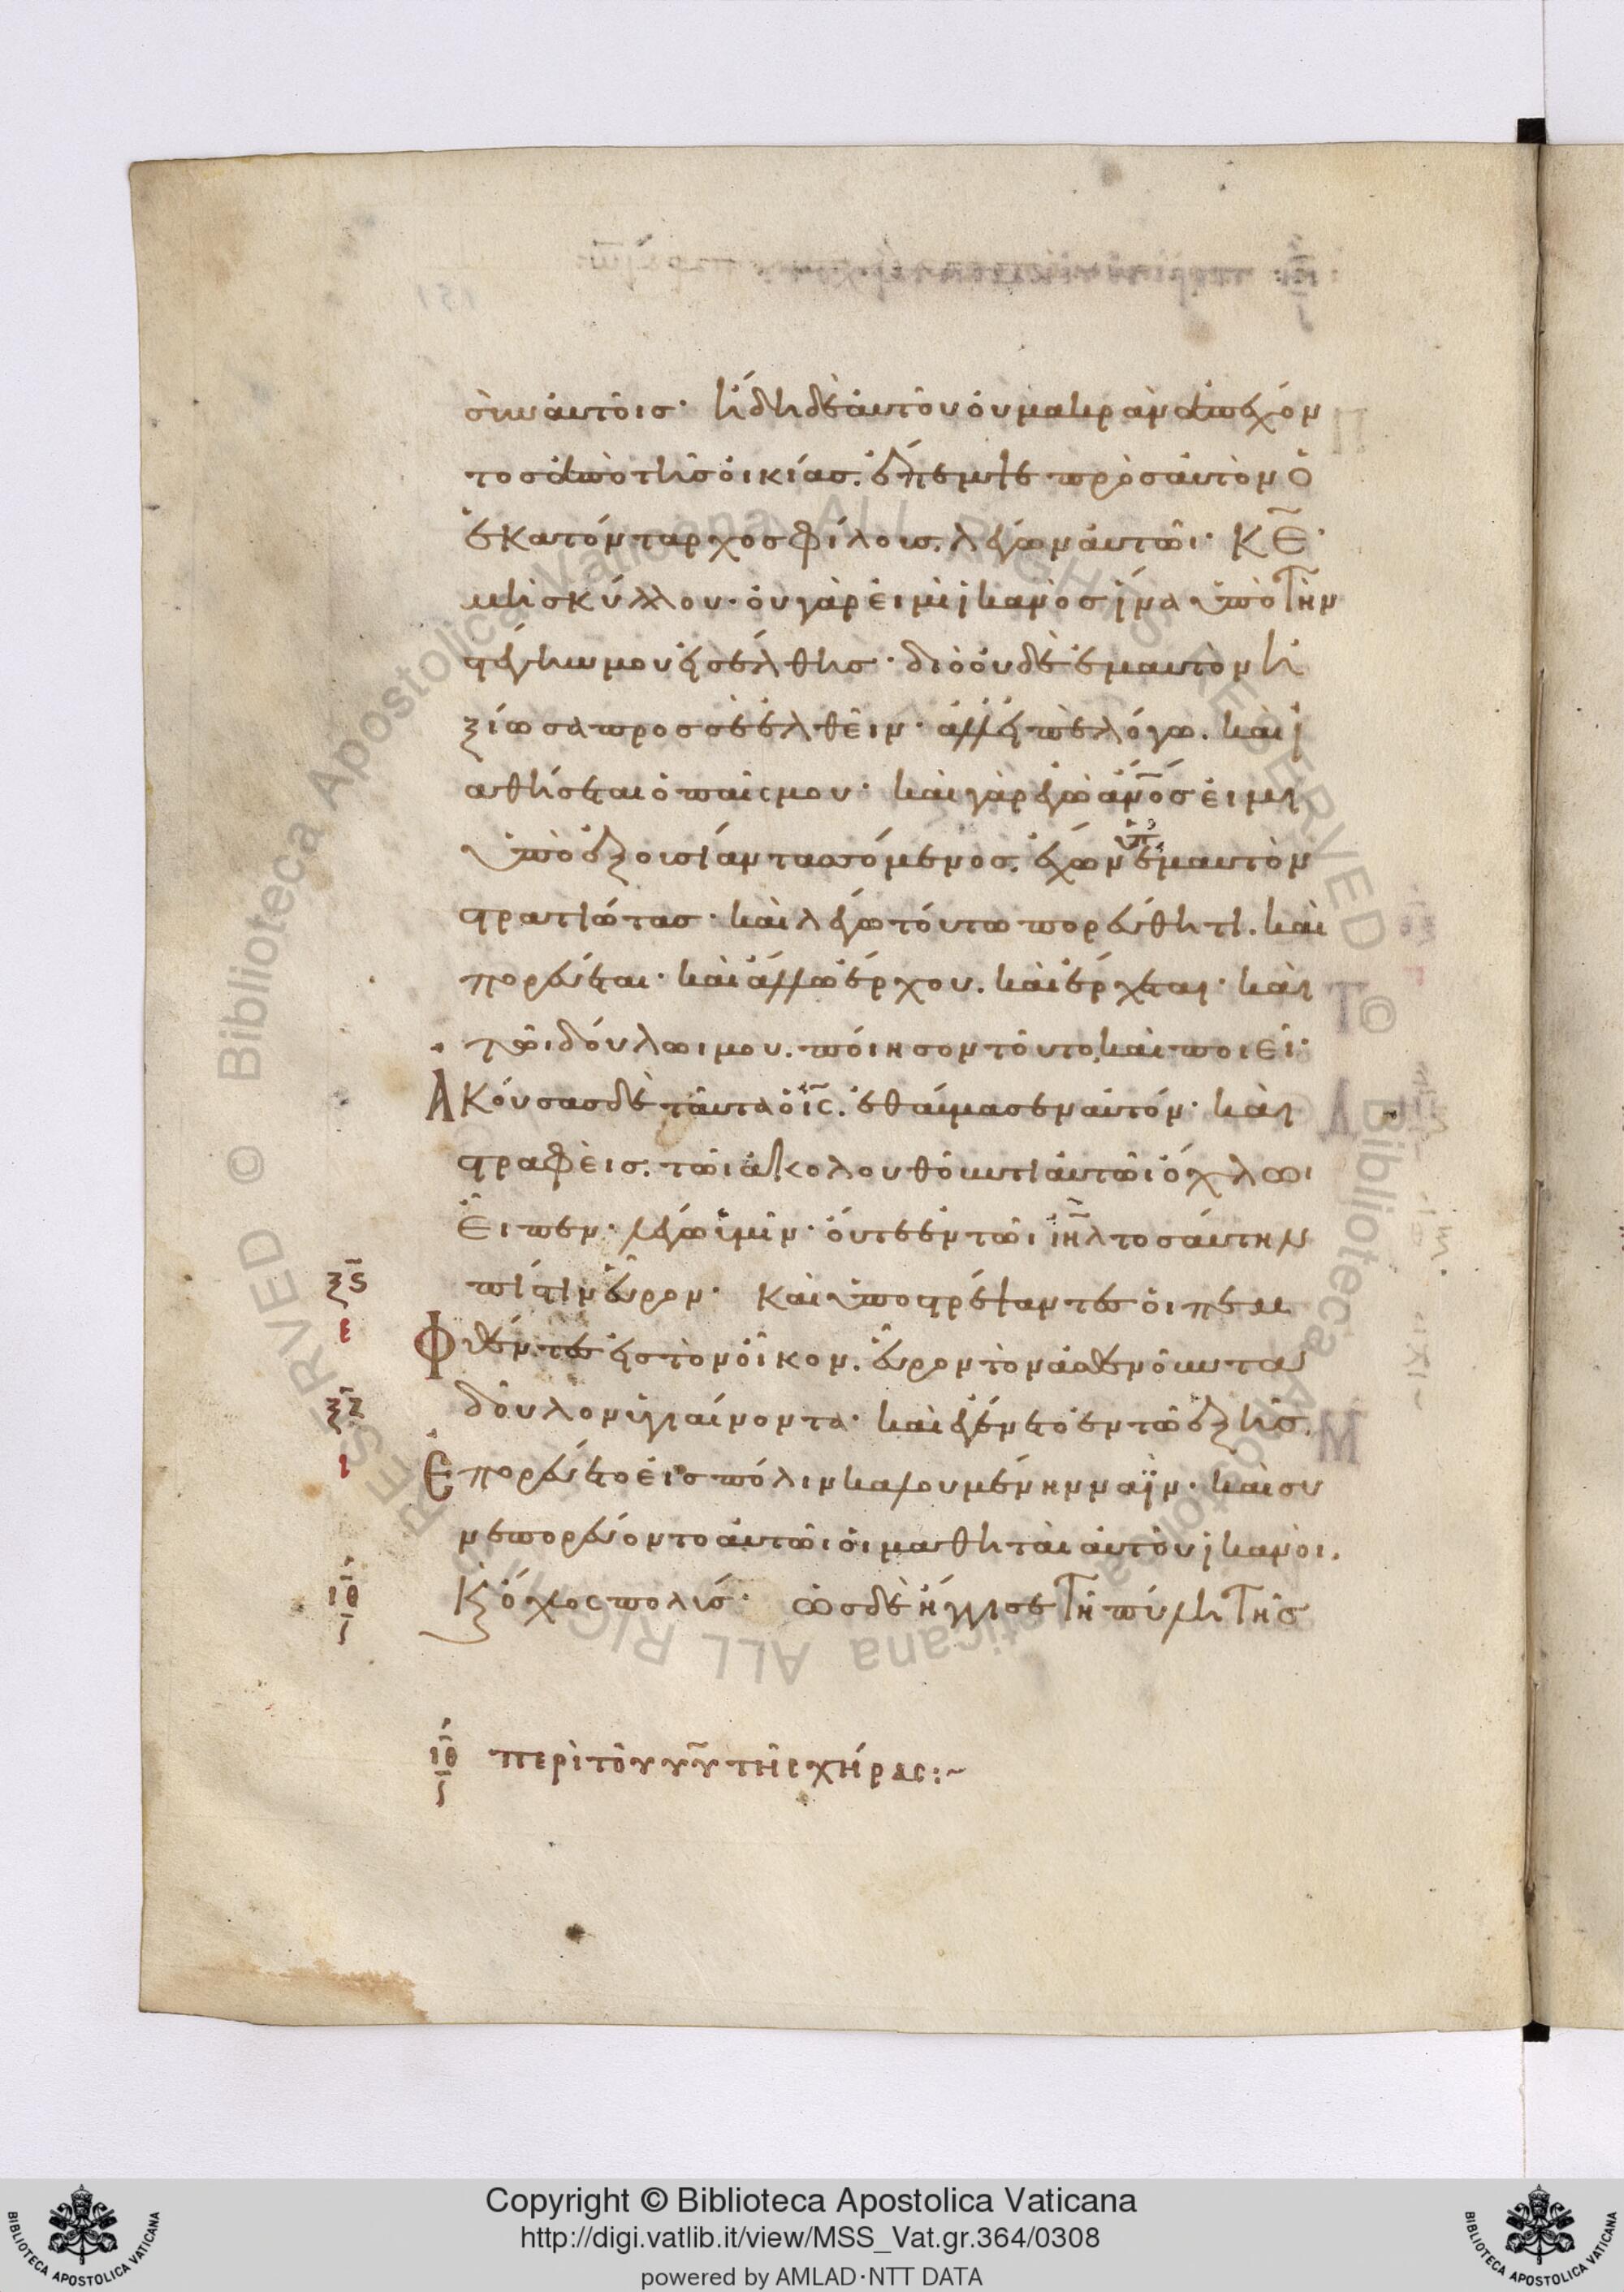 σὺν αὐτοῖσ· ἤδη δὲ αὐτοῦ οὐ μακρὰν ἀπέχον
τοσ ἀπὸ τῆσ οἰκίασ. ἔπεμψε πρὸσ αὐτὸν ὁ
ἑκατόνταρχοσ φίλουσ. λέγων αὐτῶι· Κ̅Ε̅·
μὴ σκύλλου· οὐ γὰρ εἰμὶ ἱκανὸσ ἵνα ὑπὸ τὴν
στέγην μου εἰσέλθησ· διὸ οὐδὲ ἐμαυτὸν ἠ
ξίωσα προσ σὲ ἐλθεῖν· ἀλλὰ εἰπὲ λόγω. καὶ ἰ
αθήσεται ὁ παῖς μου· καὶ γὰρ ἐγὼ ἄν̅ο̅σ εἰμι
ὑπὸ ἐξουσίαν τασσόμενοσ. ἔχων ὑπ' ἐμαυτὸν
στρατιώτασ· καὶ λέγω τούτω πορεύθητι. καὶ
πορεύεται· καὶ ἄλλω ἔρχου. καὶ ἔρχεται· καὶ
τῶι δούλωι μου. ποίησον τοῦτο, καὶ ποιεῖ·
Ἀκούσασ δὲ ταῦτα ὁ ι̅ς̅. ἐθαύμασεν αὐτόν· καὶ
στραφεὶσ. τῶι ἀκολουθοῦντι αὐτῶι ὄχλωι
εἶπεν· λέγω ὑμῖν· οὔτε ἐν τῶι ι̅η̅λ τοσαύτην
πίστιν εὗρον· Καὶ ὑποστρέψαντεσ οἱ πεμ
φθέντεσ εἰσ τὸν οἶκον. εὗρον τὸν ἀσθενοῦντα
δοῦλον ὑγιαίνοντα· καὶ ἐγένετο ἐν τῶ ἑξῆσ.
Ἐπορεύετο εἰσ πόλιν καλουμένην ναΐν· καὶ συ
νεπορεύοντο αὐτῶι οἱ μαθηταὶ αὐτοῦ ἱκανοὶ.
Κ ὄχλος πολύσ· ὡσ δὲ ἤγγισε τῆ πύλη τῆσ
ξ̅ς̅
ε
ξ̅ζ̅
ι
ι̅θ̅
ι̅θ̅ περὶ τοῦ υ̅υ̅ τῆς χήρας:~
Copyright © Biblioteca Apostolica Vaticana
http://digi.vatlib.it/view/MSS_Vat.gr.364/0308
powered by AMLAD·NTT DATA
BIBLIOTECA APOSTOLICA VATICANA
BIBLIOTECA APOSTOLICA VATICANA